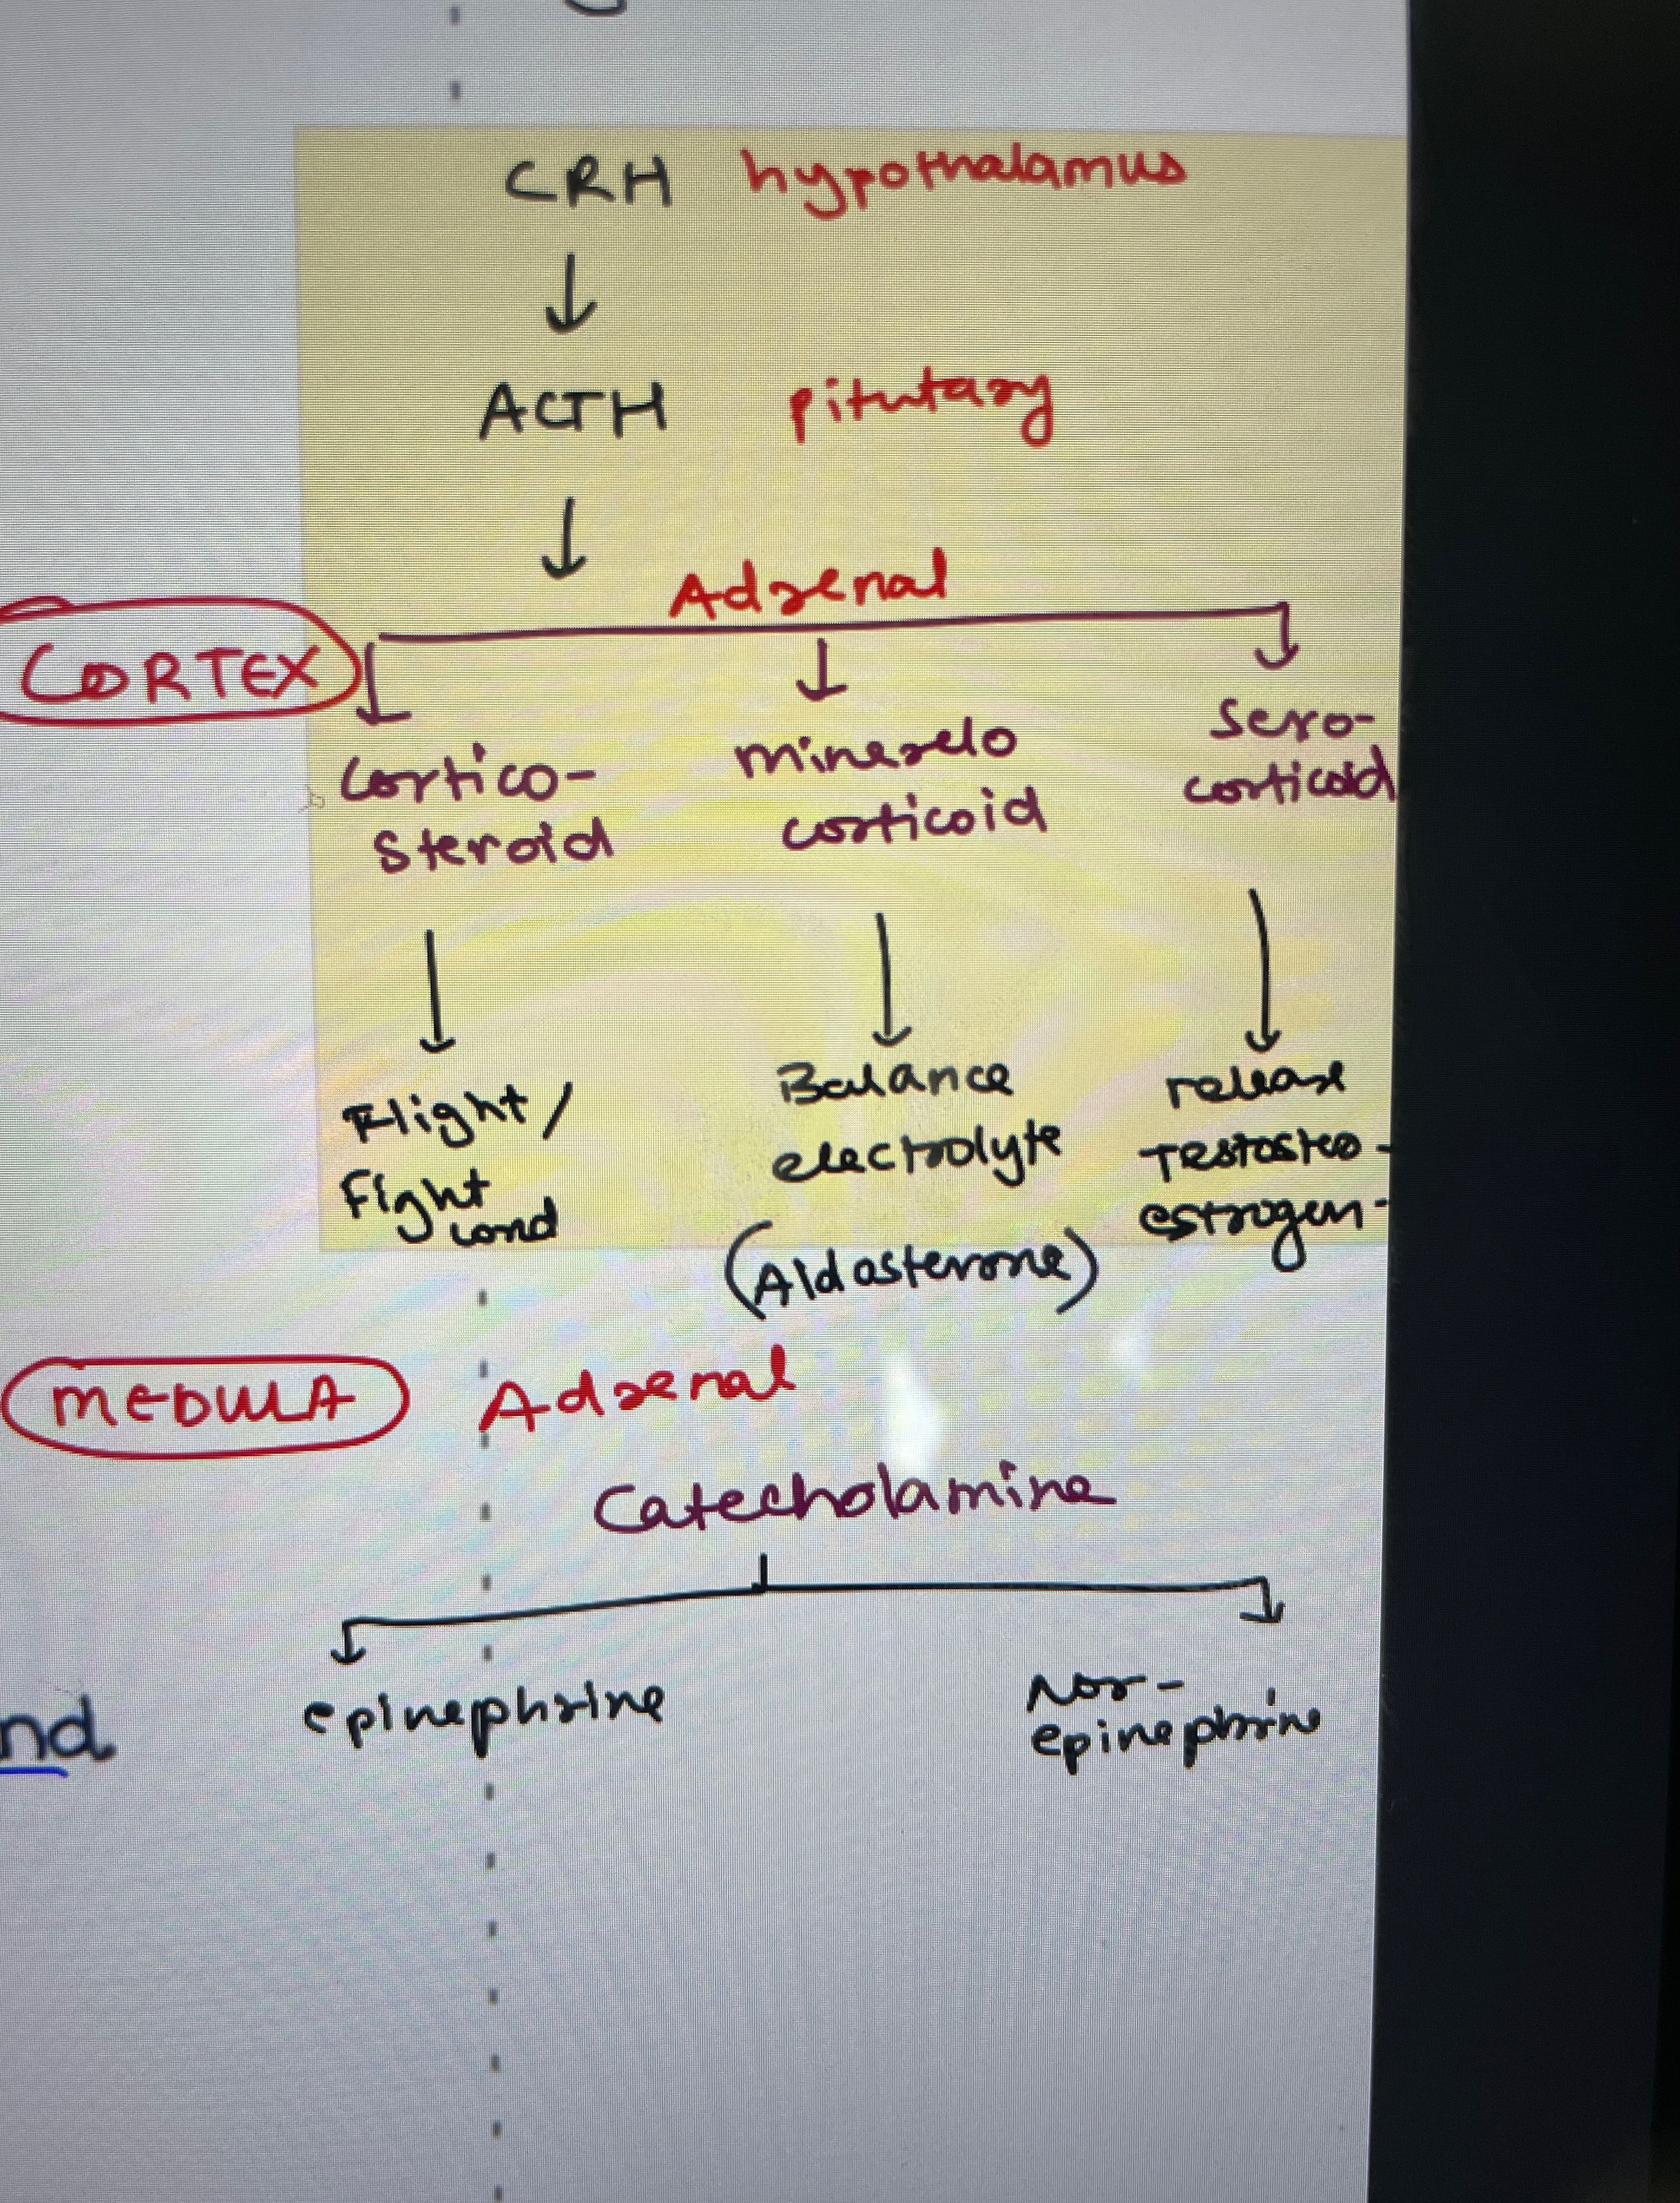 CRH hypothalamus
ACTH pitutary
Adrenal
CORTEX
Cortico-
Steroid
minerelo
corticoid
Sexo-
corticoid
Flight/
Fight
cond
Balance
electrolyte
(Aldosterone)
release
Testosteo-
estrogen-
MEDULA Adrenal
Catecholamine
epinephrine
Nor-
epinephrine
nd